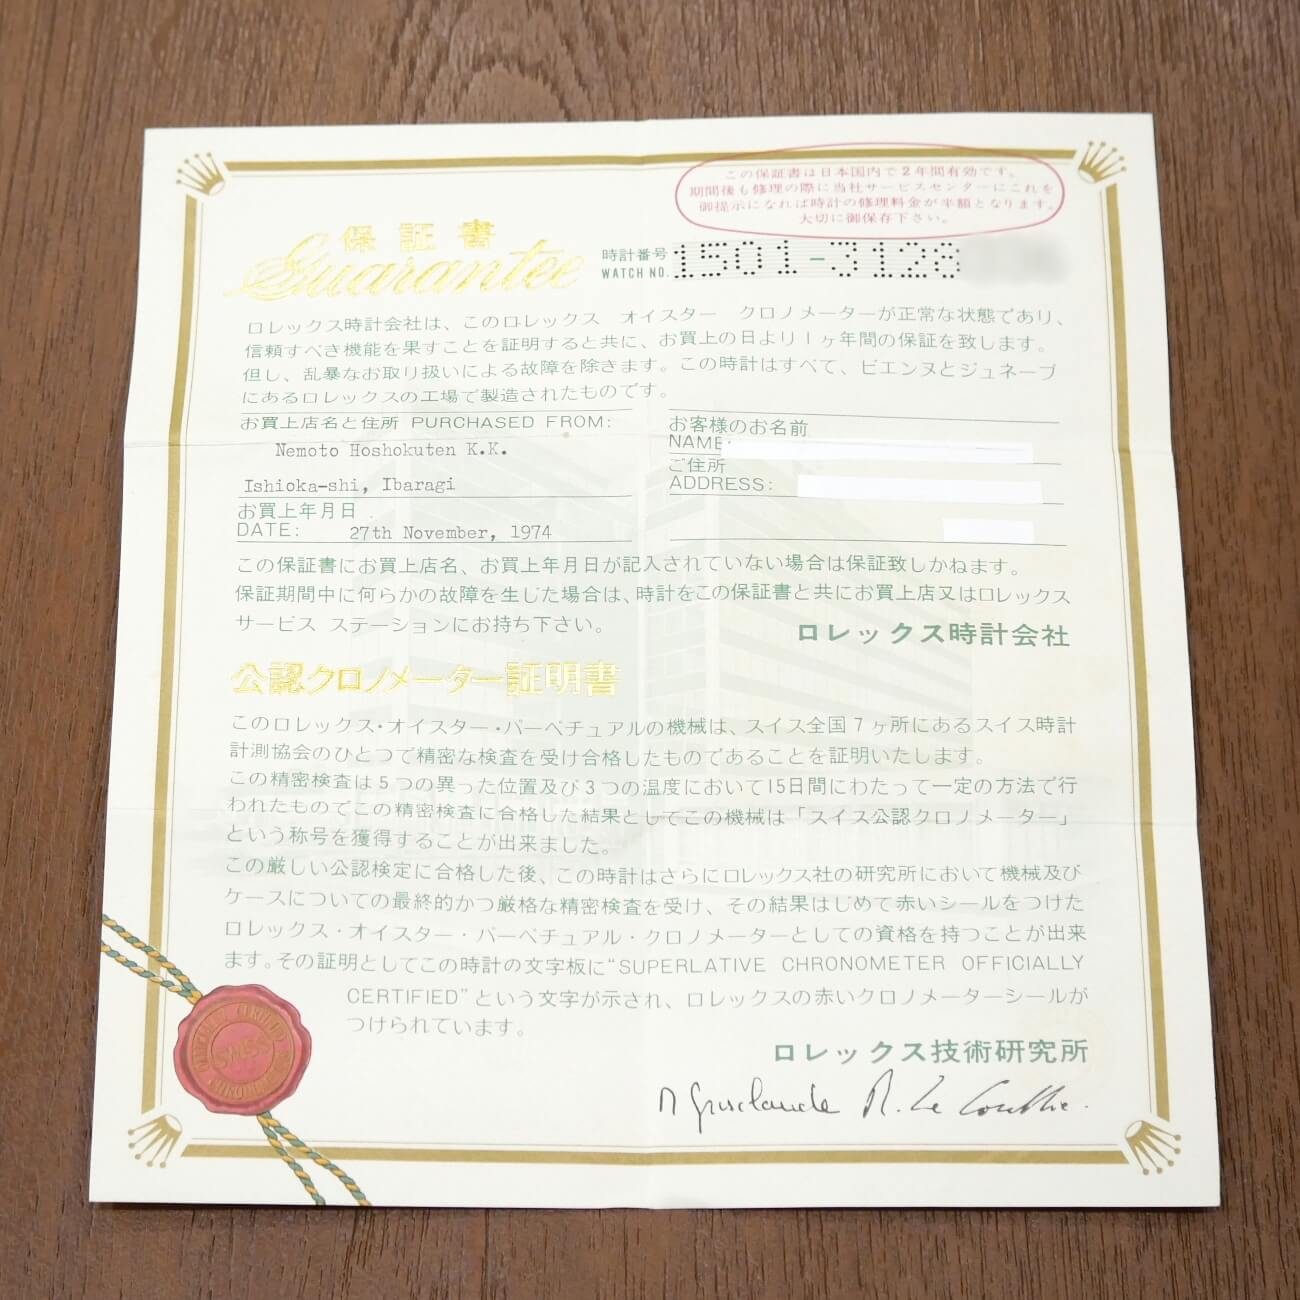 この保証書は日本国内で2年間有効です。
期間後も修理の際に当社サービスセンターにこれを
御提示になれば時計の修理料金が半額となります。
大切に御保存下さい。
保証書
Guarantee
時計番号
WATCH NO. 1501-3128
ロレックス時計会社は、このロレックス オイスター クロノメーターが正常な状態であり、
信頼すべき機能を果すことを証明すると共に、お買上の日より1ヶ年間の保証を致します。
但し、乱暴なお取り扱いによる故障を除きます。この時計はすべて、ビエンヌとジュネーブ
にあるロレックスの工場で製造されたものです。
お買上店名と住所 PURCHASED FROM:
Nemoto Hoshokuten K.K.
Ishioka-shi, Ibaragi
お買上年月日
DATE: 27th November, 1974
お客様のお名前
NAME:
ご住所
ADDRESS:
この保証書にお買上店名、お買上年月日が記入されていない場合は保証致しかねます。
保証期間中に何らかの故障を生じた場合は、時計をこの保証書と共にお買上店又はロレックス
サービス ステーションにお持ち下さい。
ロレックス時計会社
公認クロノメーター証明書
このロレックス・オイスター・パーペチュアルの機械は、スイス全国7ヶ所にあるスイス時計
計測協会のひとつで精密な検査を受け合格したものであることを証明いたします。
この精密検査は5つの異った位置及び3つの温度において15日間にわたって一定の方法で行
われたものでこの精密検査に合格した結果としてこの機械は「スイス公認クロノメーター」
という称号を獲得することが出来ました。
この厳しい公認検定に合格した後、この時計はさらにロレックス社の研究所において機械及び
ケースについての最終的かつ厳格な精密検査を受け、その結果はじめて赤いシールをつけた
ロレックス・オイスター・パーペチュアル・クロノメーターとしての資格を持つことが出来
ます。その証明としてこの時計の文字板に“SUPERLATIVE CHRONOMETER OFFICIALLY
CERTIFIED”という文字が示され、ロレックスの赤いクロノメーターシールが
つけられています。
ロレックス技術研究所
SWISS